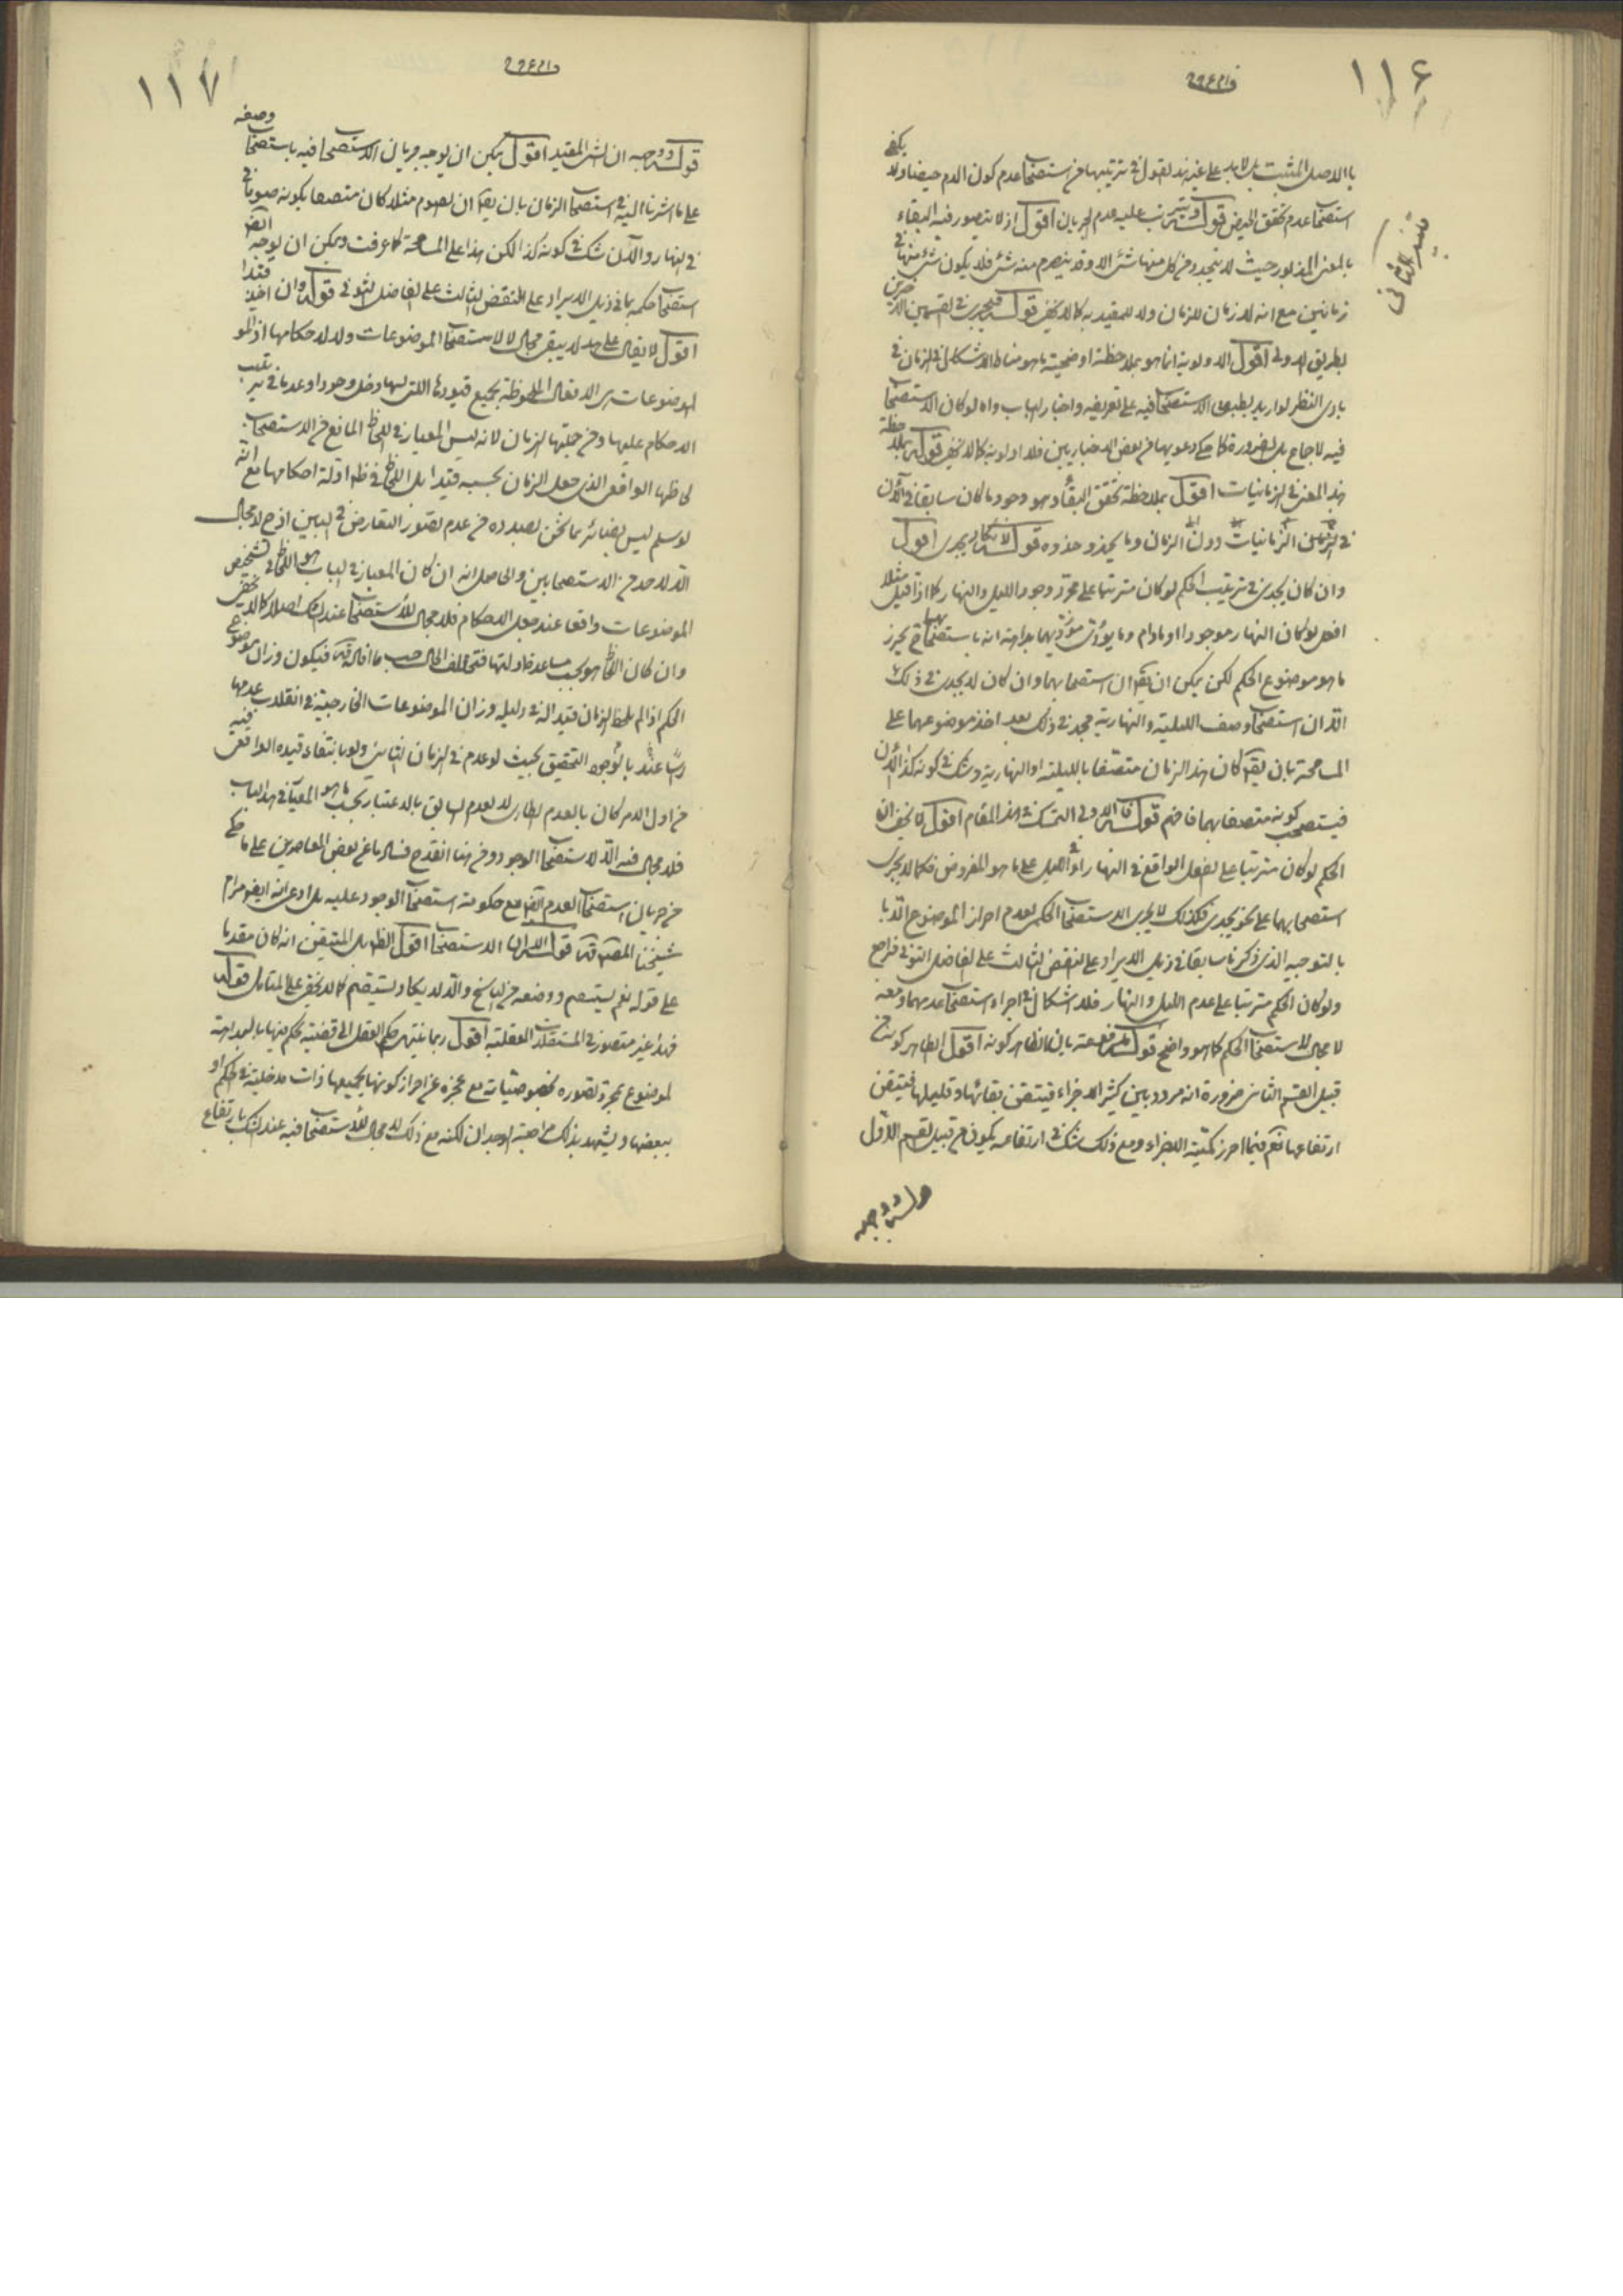 ١١٦
بالاصل المثبت بل لا بد على غير هذا القول في ترتيبها من استصحاب عدم كون الدم حيضا ولا يكفي
استصحاب عدم تحقق الحيض قوله ويترتب عليه عدم الجريان اقول اذ لا يتصور فيه البقاء
بالمعنى المذكور حيث لا يتجدد في كل منها شئ الا وقد ينصرم منه شئ فلا يكون شئ منها في
زمانين مع انه لا زمان للزمان ولا للمقيد به كما لا يخفى قوله فيجرى في القسمين الاخيرين
بطريق اولى اقول الاولوية انما هو بملاحظة اوضحية ما هو مناط الاشكال في الزمان في
بادى النظر لو اريد تطبيق الاستصحاب فيه على تعريفه واخبار الباب والا لو كان الاستصحاب
فيه لاجماع بل ضرورة كما حكى دعويها من بعض الاخباريين فلا اولوية كما لا يخفى قوله بملاحظة
هذا المعنى في الزمانيات اقول بملاحظة تحقق البقاء وهو وجود ما كان سابقا في الآن
في الزمانيات دون الزمان وما يحذو حذوه قوله لا يكاد يجدى اقول
وان كان يجدى في ترتيب الحكم لو كان مترتبا على مجرد وجود الليل والنهار كما اذا قيل مثلا
افعل لو كان النهار موجودا او مادام وما يؤدى مؤديهما بداهة انه باستصحابهما يحرز
ما هو موضوع الحكم لكن يمكن ان يقال ان استصحابهما وان كان لا يجدى في ذلك
الا ان استصحاب وصف الليلية والنهارية مجد في ذلك بعد اخذ موضوعهما على
المسامحة بان يقال كان هذا الزمان متصفا بالليلية او النهارية وشك في كونه كذا الآن
فيستصحب كونه متصفا بهما فافهم قوله فالاولى التمسك في هذا المقام اقول لا يخفى ان
الحكم لو كان مترتبا على الفعل الواقع في النهار او الليل على ما هو المفروض فكما لا يجرى
استصحابهما على نحو يجدى فكذلك لا يجرى الاستصحاب الحكمى لعدم احراز الموضوع الا با
بالتوجيه الذى ذكرنا سابقا في ذيل الايراد على النقض الثالث على الفاضل التونى فراجع
ولو كان الحكم مترتبا على عدم الليل والنهار فلا اشكال في اجراء استصحاب عدمهما ومعه
لا مجال لاستصحاب الحكم كما هو واضح قوله بان الظاهر كونه اقول الظاهر كونه من
قبيل القسم الثانى ضرورة انه مردد بين كثير الاجزاء فيتيقن بقائها وقليلها فيتيقن
ارتفاعها نعم فيما احرز كمية الاجزاء ومع ذلك شك في ارتفاعه يكون من قبيل القسم الاول
قوله ووجهه
١١٧
قوله ووجهه ان الشئ المقيد اقول يمكن ان يوجه جريان الاستصحاب فيه باستصحاب وصفه
على ما اشرنا اليه في استصحاب الزمان بان يقال ان الصوم مثلا كان متصفا بكونه صوما في
في النهار والآن شك في كونه كذا لكن هذا على المسامحة كما عرفت ويمكن ان يوجه ايضا
استصحاب حكمه بما في ذيل الايراد على النقض الثالث على الفاضل التونى قوله وان اخذ قيدا
اقول لا يقال على هذا لا يبقى مجال لاستصحاب الموضوعات ولا لاحكامها اذ المو
الموضوعات هى الافعال الملحوظة بجميع قيودها التى لها دخل وجودا وعدما في ترتب
الاحكام عليها ومن جملتها الزمان لانه ليس المعيار في اللحاظ المانع من الاستصحاب
لحاظها الواقعى الذى جعل الزمان بحسبه قيدا بل اللحاظ في ظاهر ادلة احكامها مع انه
لو سلم ليس بضائر بما نحن بصدده من عدم تصور التعارض في البين اذ ح لا مجال
الا لاحد من الاستصحابين والحاصل انه ان كان المعيار في الباب هو اللحاظ في تشخيص
الموضوعات واقعا عند جعل الاحكام فلا مجال للاستصحاب عند الشك اصلا كما لا يخفى
وان كان اللحاظ هو بحسب مساعدة ادلتها فتختلف الحال حسب ما افاده قده فيكون وزان موضوع
الحكم اذا لم يلحظ الزمان قيدا له في دليله وزان الموضوعات الخارجية في انقلاب عدمها
راسا عنده بالوجود التحقيق بحيث لو عدم في الزمان الثانى ولو بانتفاء قيده الواقعى فيه
من اول الامر كان بالعدم الطارى لا العدم السابق بالاعتبار بحسب ما هو المعيار في هذا الباب
فلا مجال فيه الا لاستصحاب الوجود ومن هنا انقدح فساد ما عن بعض المعاصرين على ما حكى
من جريان استصحاب العدم ايضا مع حكومة استصحاب الوجود عليه بل ادعى انه ايضا مرام
شيخنا المصنف قده الاستصحاب اقول الظاهر بل المتيقن انه كان مقدما
على قوله نعم يستقيم ووضعه من الناسخ والا لا يكاد يستقيم كما لا يخفى على المتامل قوله
فهذا غير متصور في المستقلات العقلية اقول ربما ينتهى حكم العقل الى قضية يحكم فيها بالبداهة
لموضوع بمجرد تصوره بخصوصياته مع عجزه عن احراز كونها بجميعها ذات مدخلية في الحكم او
ببعضها ويشهد بذلك مراجعة الوجدان لكنه مع ذلك لا مجال للاستصحاب فيه عند الشك بارتفاع